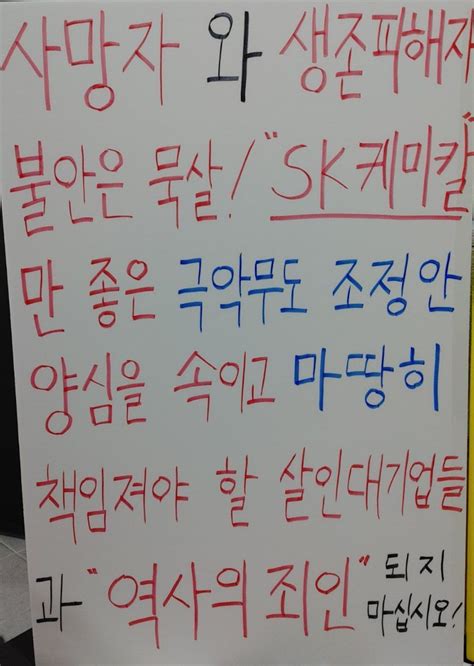 사망자 와 생존피해자
불안은 묵살! "SK케미칼"
만 좋은 극악무도 조정안
양심을 속이고 마땅히
책임져야 할 살인대기업들
과 "역사의 죄인" 되지
마십시오!